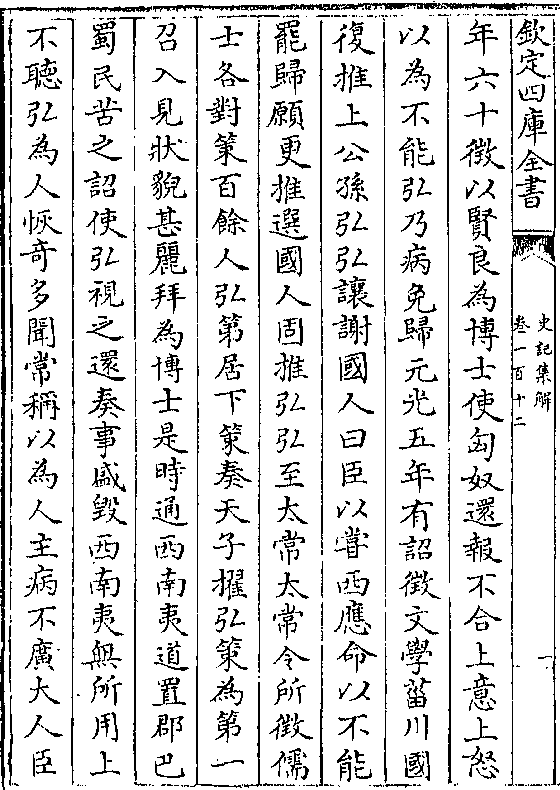 欽定四庫全書
史記集解
卷一百十二
一
年六十徵以賢良為博士使匈奴還報不合上意上怒
以為不能弘乃病免歸元光五年有詔徵文學菑川國
復推上公孫弘弘讓謝國人曰臣以嘗西應命以不能
罷歸願更推選國人固推弘弘至太常太常令所徵儒
士各對策百餘人弘第居下策奏天子擢弘策為第一
召入見狀貌甚麗拜為博士是時通西南夷道置郡巴
蜀民苦之詔使弘視之還奏事盛毀西南夷無所用上
不聽弘為人恢奇多聞常稱以為人主病不廣大人臣